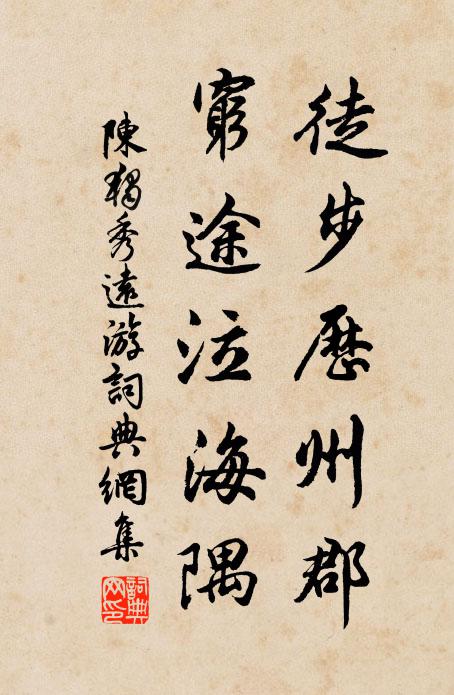 徒步歷州郡
窮途泣海隅
陳獨秀遠游詞典網集
詞典
网印